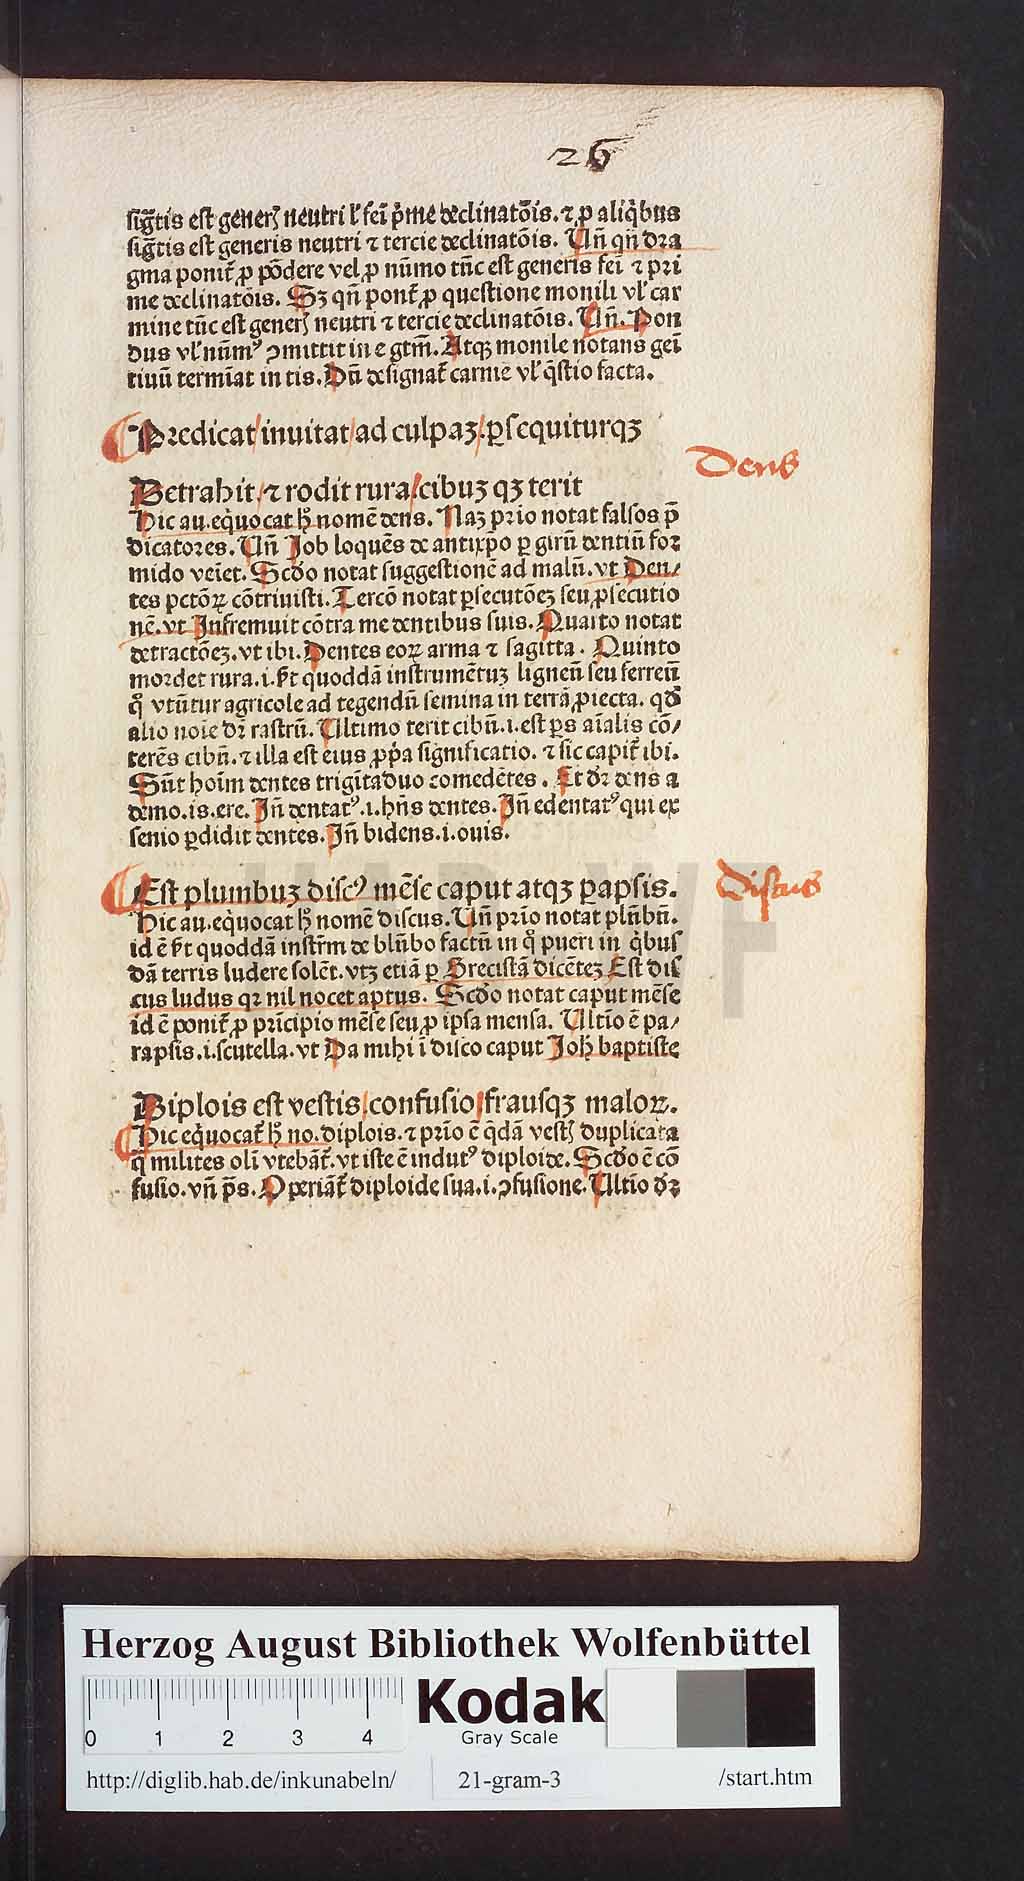 26
sigtis est generꝭ neutri lʼ fei p̄me declinatōis. ⁊ ꝓ aliq̇bus
sigtis est generis neutri ⁊ tercie declinatōis. Un̄ qn̄ dra
gma ponit̄ ꝓ pōdere vel ꝓ nūmo tūc est generis fei ⁊ pri
me declinatōis. Sꝫ qn̄ pont̄ ꝓ questione monili vlʼ car
mine tūc est generꝭ neutri ⁊ tercie declinatōis. Un̄. Pon
dus vlʼ nūmꝰ ꝯmittit in e gtm̄. Atqꝫ monile notans gei
tiuū termīat in tis. Dū designat̄ carmē vlʼ q̄stio facta.
Predicat/ inuitat/ ad culpaꝫ/. ꝑsequiturqꝫ
Dens
Detrahit/ ⁊ rodit rura/ cibuꝫ qꝫ terit
Hic au. eq̇uocat hꝭ nomē dens. Naꝫ prio notat falsos p̄
dicatores. Un̄ Job loquēs de antixp̄o ꝑ girū dentiū for
mido veīet. Scd̄o notat suggestionē ad malū. vt Den/
tes pctōꝝ cōtriuisti. Tercō notat ꝑsecutōeꝫ seu ꝑsecutio
nē. vt Infremuit cōtra me dentibus suis. Quarto notat
detractōeꝫ. vt ibi. Dentes eoꝝ arma ⁊ sagitta. Quinto
mordet rura. i. st quoddā instrumētuꝫ ligneū seu ferreū
qͦ vtūtur agricole ad tegendū semina in terrā ꝓiecta. qd̄
alio noie dꝛ rastrū. Ultimo terit cibū. i. est ꝑs aīalis cō/
terēs cibū. ⁊ illa est eius ꝓpͥa significatio. ⁊ sic capit̄ ibi.
Sūt hoīm dentes trigītaduo comedētes. Et dꝛ dens a
demo. is. ere. In̄ dentatꝰ. i. hn̄s dentes. In̄ edentatꝰ qui ex
senio ꝑdidit dentes. In̄ bidens. i. ouis.
Est plumbuꝫ discꝰ mēse caput atqꝫ ꝑapsis.
Discus
Hic au. eq̇uocat hꝭ nomē discus. Un̄ prīo notat plūbū.
id ē st quoddā instr̄m de blūbo factū in qͦ pueri in q̇bus
dā terris ludere solēt. vtꝫ etiā ꝑ Grecistā dicēteꝫ Est dis
cus ludus qꝛ nil nocet aptus. Scd̄o notat caput mēse
id ē ponit̄ ꝓ prīcipio mēse seu ꝓ ipsa mensa. Ultīo ē pa/
rapsis. i. scutella. vt Da mihi ī disco caput Joh̄ baptiste
Diplois est vestis/ confusio/ frausqꝫ maloꝝ.
Hic eq̇uocat̄ hꝭ no. diplois. ⁊ prīo ē q̇dā vestꝭ duplicata
q̄ milites olī vtebāt̄. vt iste ē indutꝰ diploide. Scd̄o ē cō
fusio. vn̄ p̄s. Operiāt̄ diploide sua. i. ꝯfusione. Ultīo dꝛ
HAB WF
Herzog August Bibliothek Wolfenbüttel
0 1 2 3 4
Kodak
Gray Scale
http://diglib.hab.de/inkunabeln/ 21-gram-3 /start.htm